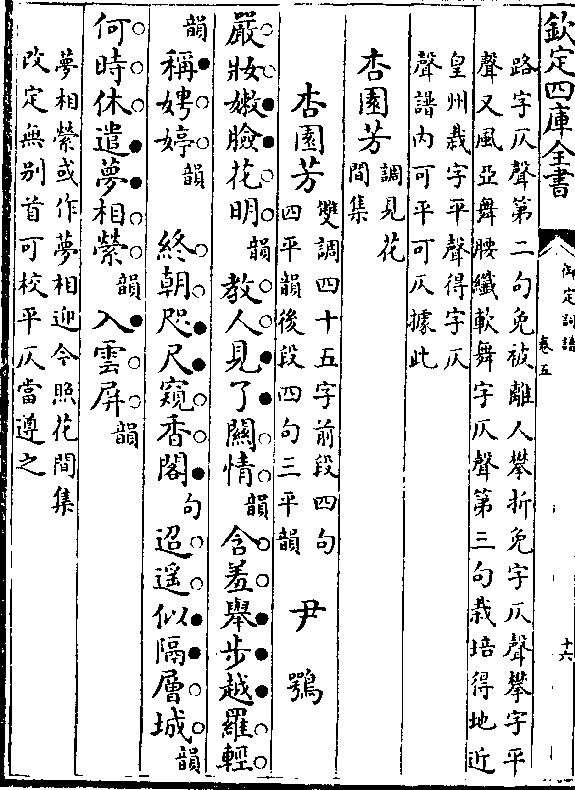 欽定四庫全書
御定詞譜
卷五
十六
路字仄聲第二句免被離人攀折免字仄聲攀字平
聲又風亞舞腰纖軟舞字仄聲第三句栽培得地近
皇州栽字平聲得字仄
聲譜内可平可仄據此
杏園芳
調見花
間集
杏園芳
雙調四十五字前段四句
四平韻後段四句三平韻
尹鶚
嚴妝嫩臉花明韻教人見了關情韻含羞舉步越羅輕
韻稱娉婷韻 終朝咫尺窺香閣句迢遥似隔層城韻
何時休遣夢相縈韻入雲屏韻
夢相縈或作夢相迎今照花間集
改定無别首可校平仄當遵之